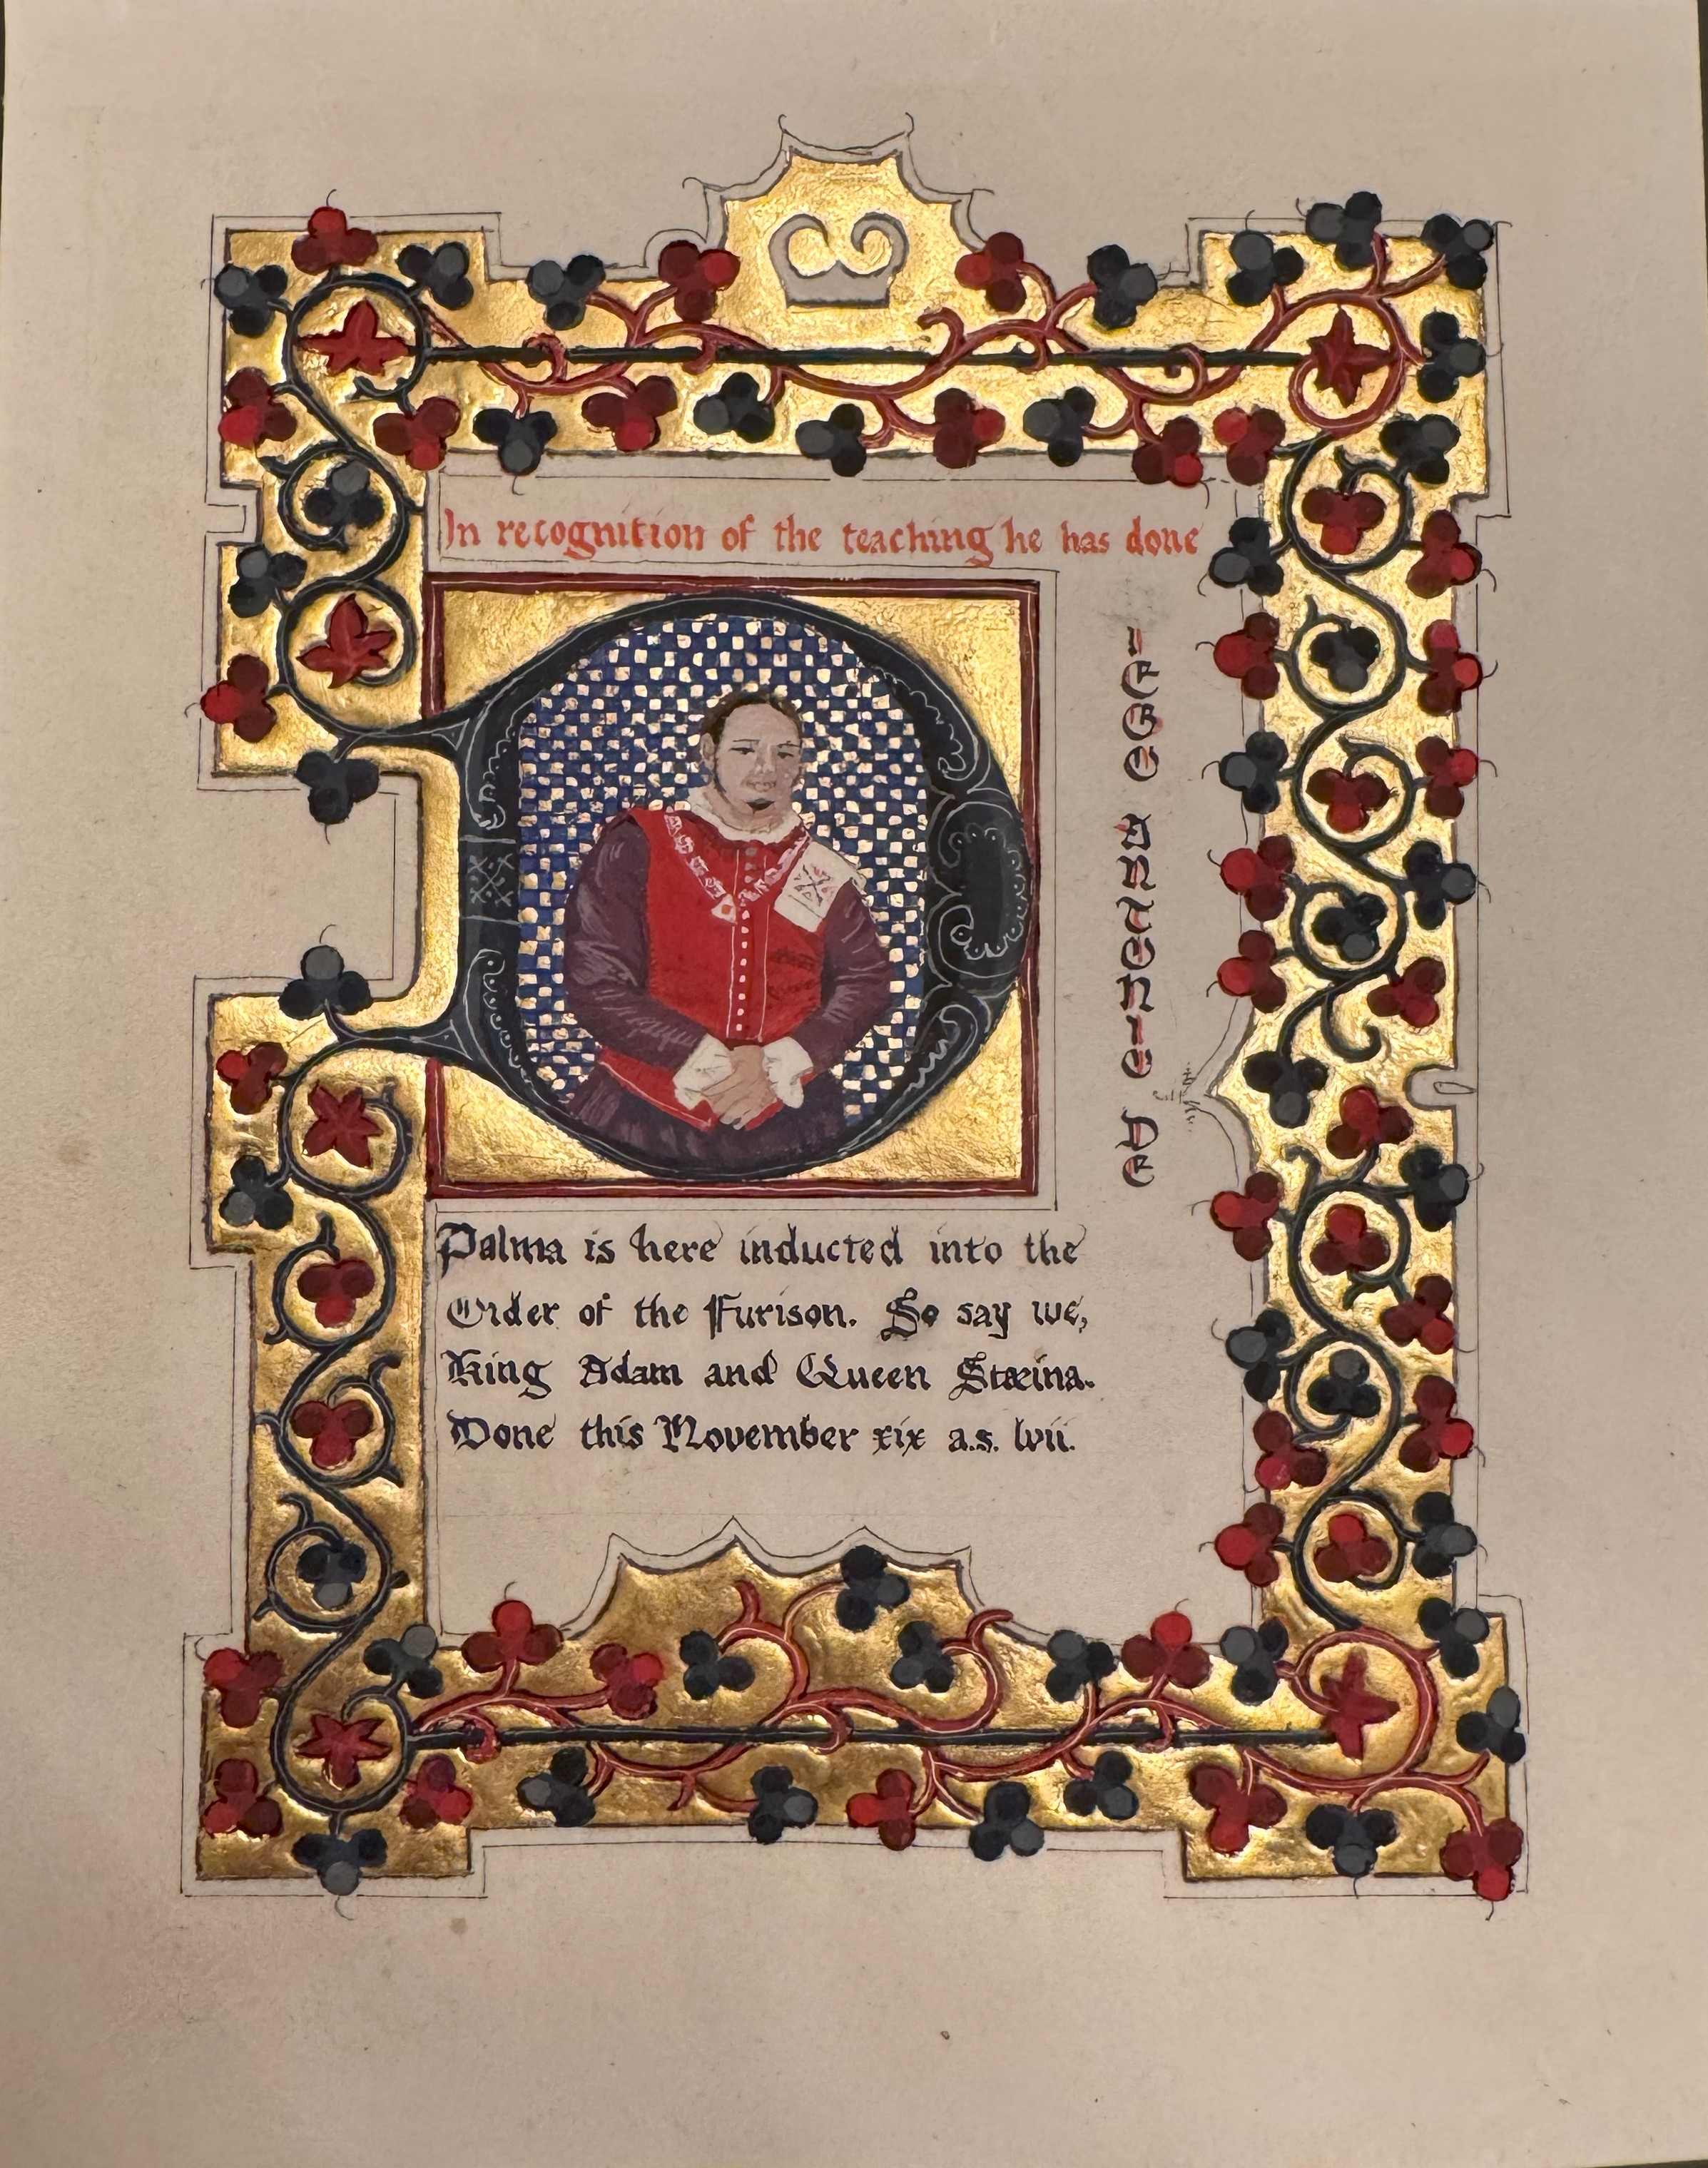 In recognition of the teaching he has done
D
IEGO
DE
Palma is here inducted into the
Order of the Furison. So say we,
King Adam and Queen Stærina.
Done this November xix a.s. lvii.